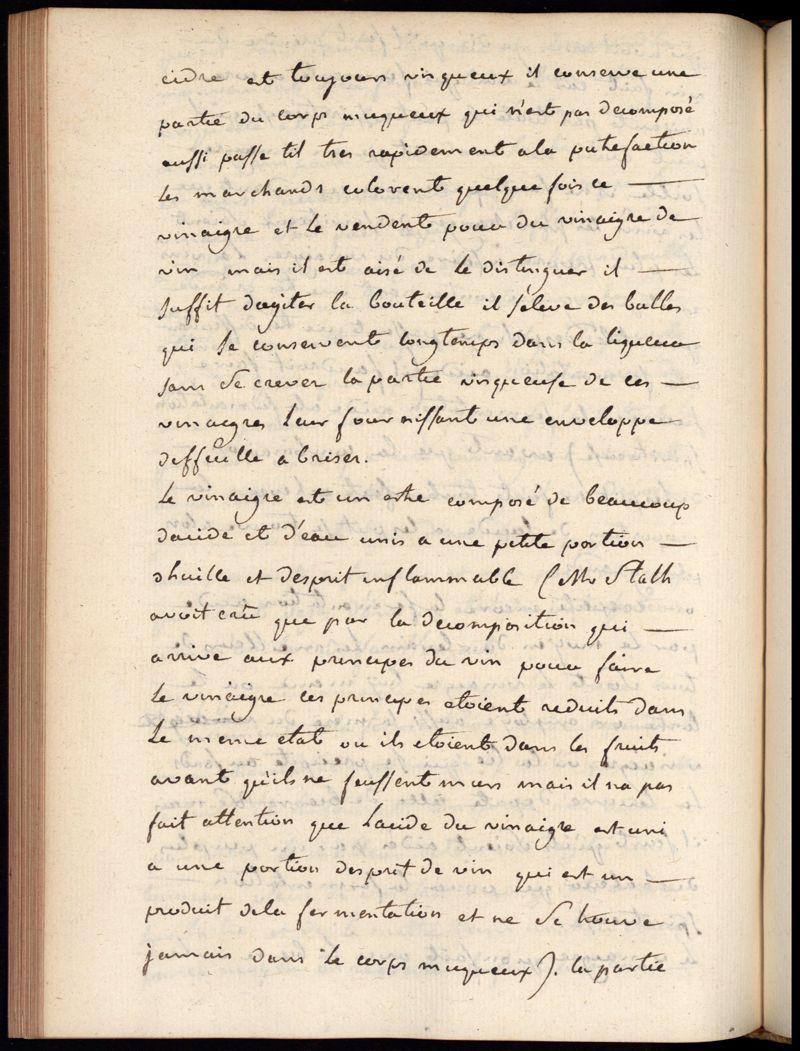 cidre est toujours visqueux il conserve une
partie du corps muqueux qui n'est pas decomposé
aussi passe til tres rapidement ala putefaction
les marchands colorent quelque fois ce —
vinaigre et le vendent pour du vinaigre de
vin mais il est aisé de le distinguer il —
suffit dagiter la bouteille il seleve des bulles
qui se conservent longtemps dans la liqueur
sans se crever la partie visqueuse de ces —
vinaigres leur fournissant une enveloppe
difficille a briser.
Le vinaigre est un estre composé de beaucoup
dacide et d'eau unis a une petite portion —
dhuille et desprit inflammable (Mr Stalh
avoit crû que par la decomposition qui —
arrive aux principes du vin pour faire
le vinaigre ces principes etoient reduits dans
le meme etat ou ils etoient dans les fruits
avant qu'ils ne feussent murs mais il na pas
fait attention que lacide du vinaigre est uni
a une portion desprit de vin qui est un —
produit dela fermentation et ne se trouve
jamais dans le corps muqueux). la partie